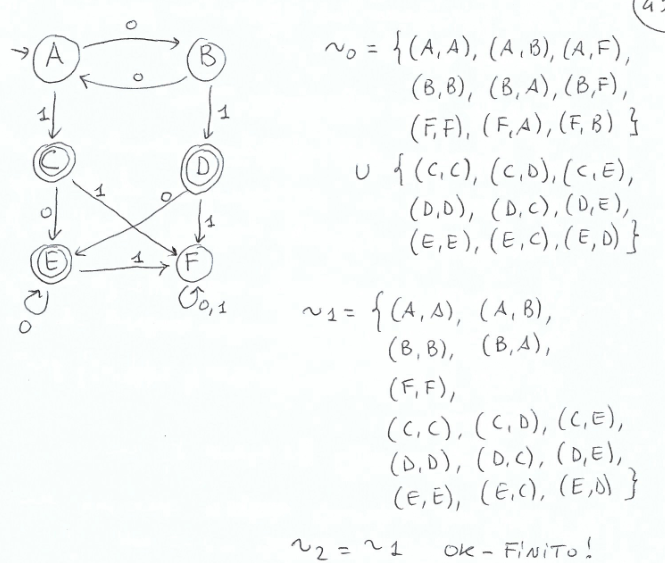 (45
→ A 0 B
0
1 1
C D
0 1 0 1
E 1 F
0 0,1
~0 = {(A,A), (A,B), (A,F),
(B,B), (B,A), (B,F),
(F,F), (F,A), (F,B) }
∪ {(C,C), (C,D), (C,E),
(D,D), (D,C), (D,E),
(E,E), (E,C), (E,D) }
~1 = {(A,A), (A,B),
(B,B), (B,A),
(F,F),
(C,C), (C,D), (C,E),
(D,D), (D,C), (D,E),
(E,E), (E,C), (E,D) }
~2 = ~1 OK - FINITO!